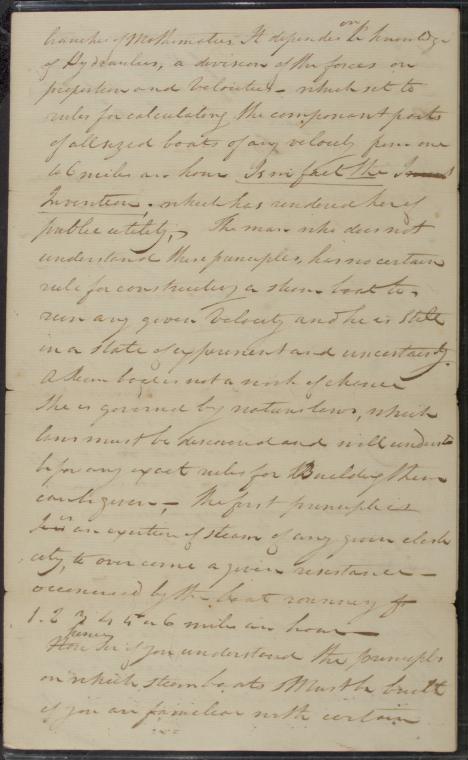 branches of Mathematics. It depends on knowledge
of Hydraulics, a division of the forces on
proportion and Velocities - which set to
rules for calculating the component parts
of all sized boats of any velocity from one
to 6 miles an hour Is in fact the
Invention. which has rendered her of
public utility, The man who does not
understand these principles, has no certain
rule for constructing a steam boat to
run any given Velocity and he is still
in a state of experiment and uncertainty.
A steam boat is not a work of chance
She is governed by natures laws, which
laws must be discovered and well understood
before any exact rules for Building them
can be given - The first principle is
an exertion of steam of any given elasti
city, to over come a given resistance -
occasioned by the boat running
1. 2 3 4 5 or 6 miles an hour -
Now Sir if you understand the principles
on which steam boats Must be built
if you are familiar with certain